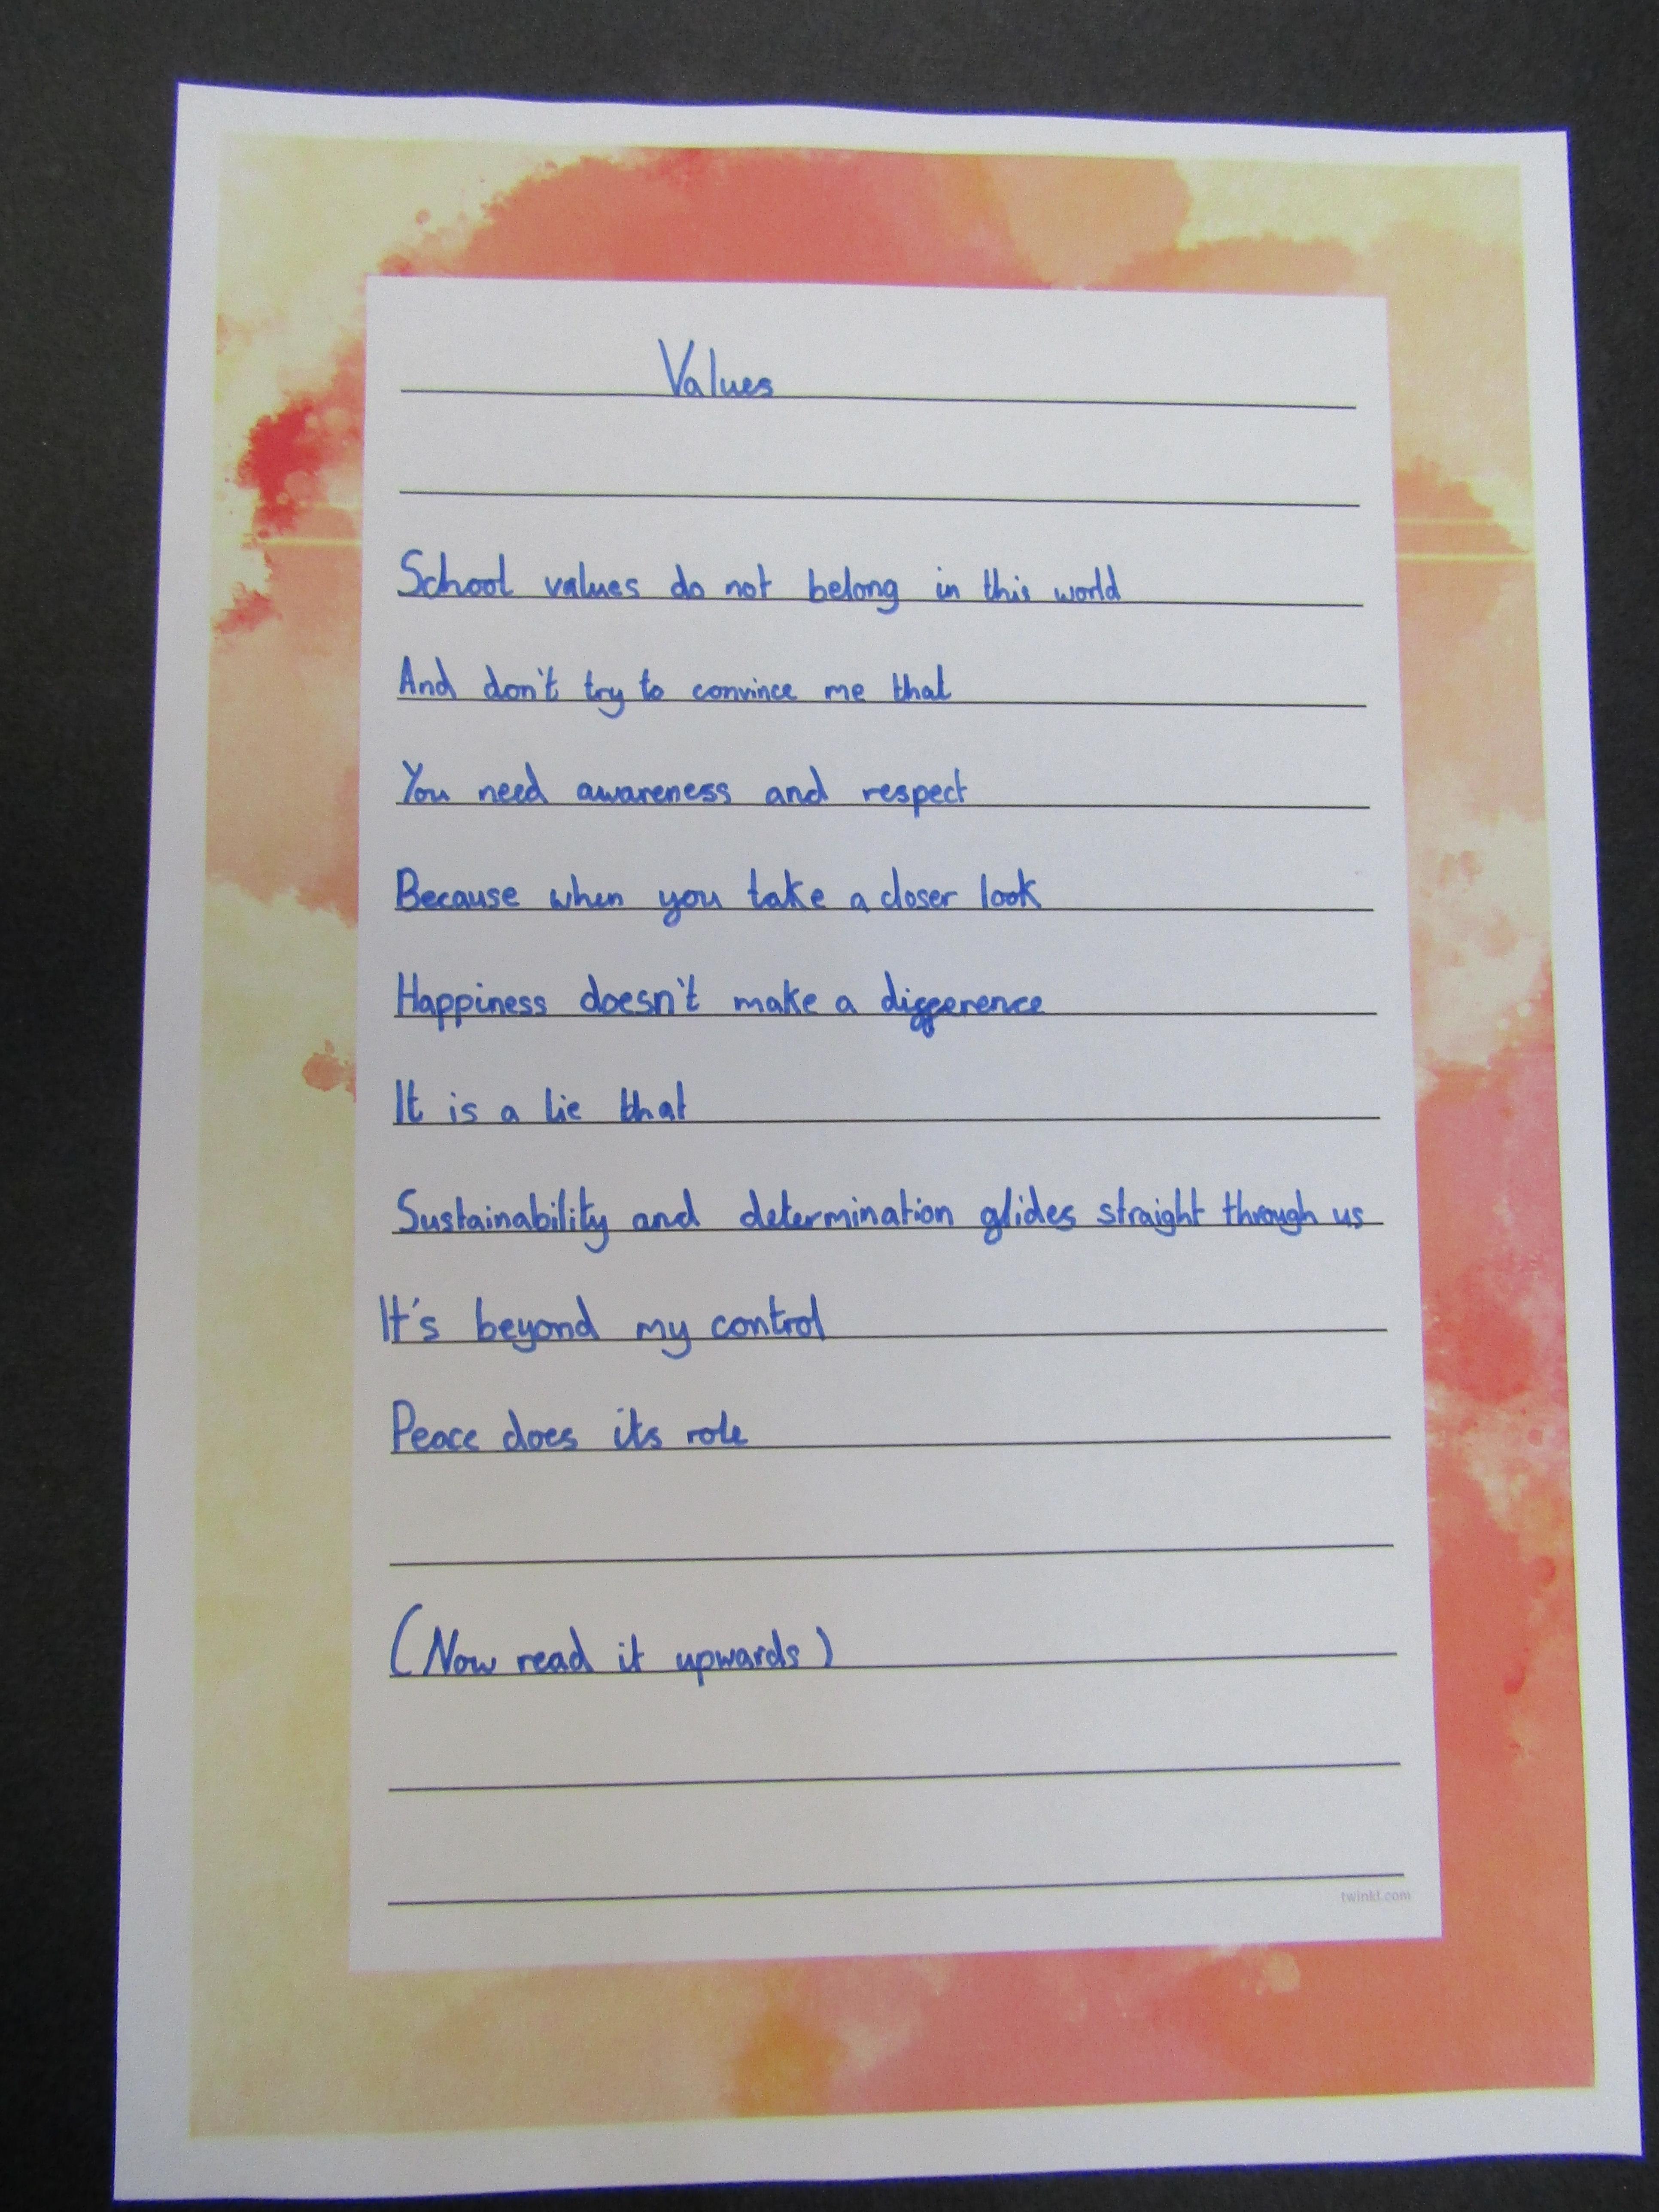 Values
School values do not belong in this world
And don't try to convince me that
You need awareness and respect
Because when you take a closer look
Happiness doesn't make a difference
It is a lie that
Sustainability and determination glides straight through us
It's beyond my control
Peace does its role
(Now read it upwards)
twinkl.com